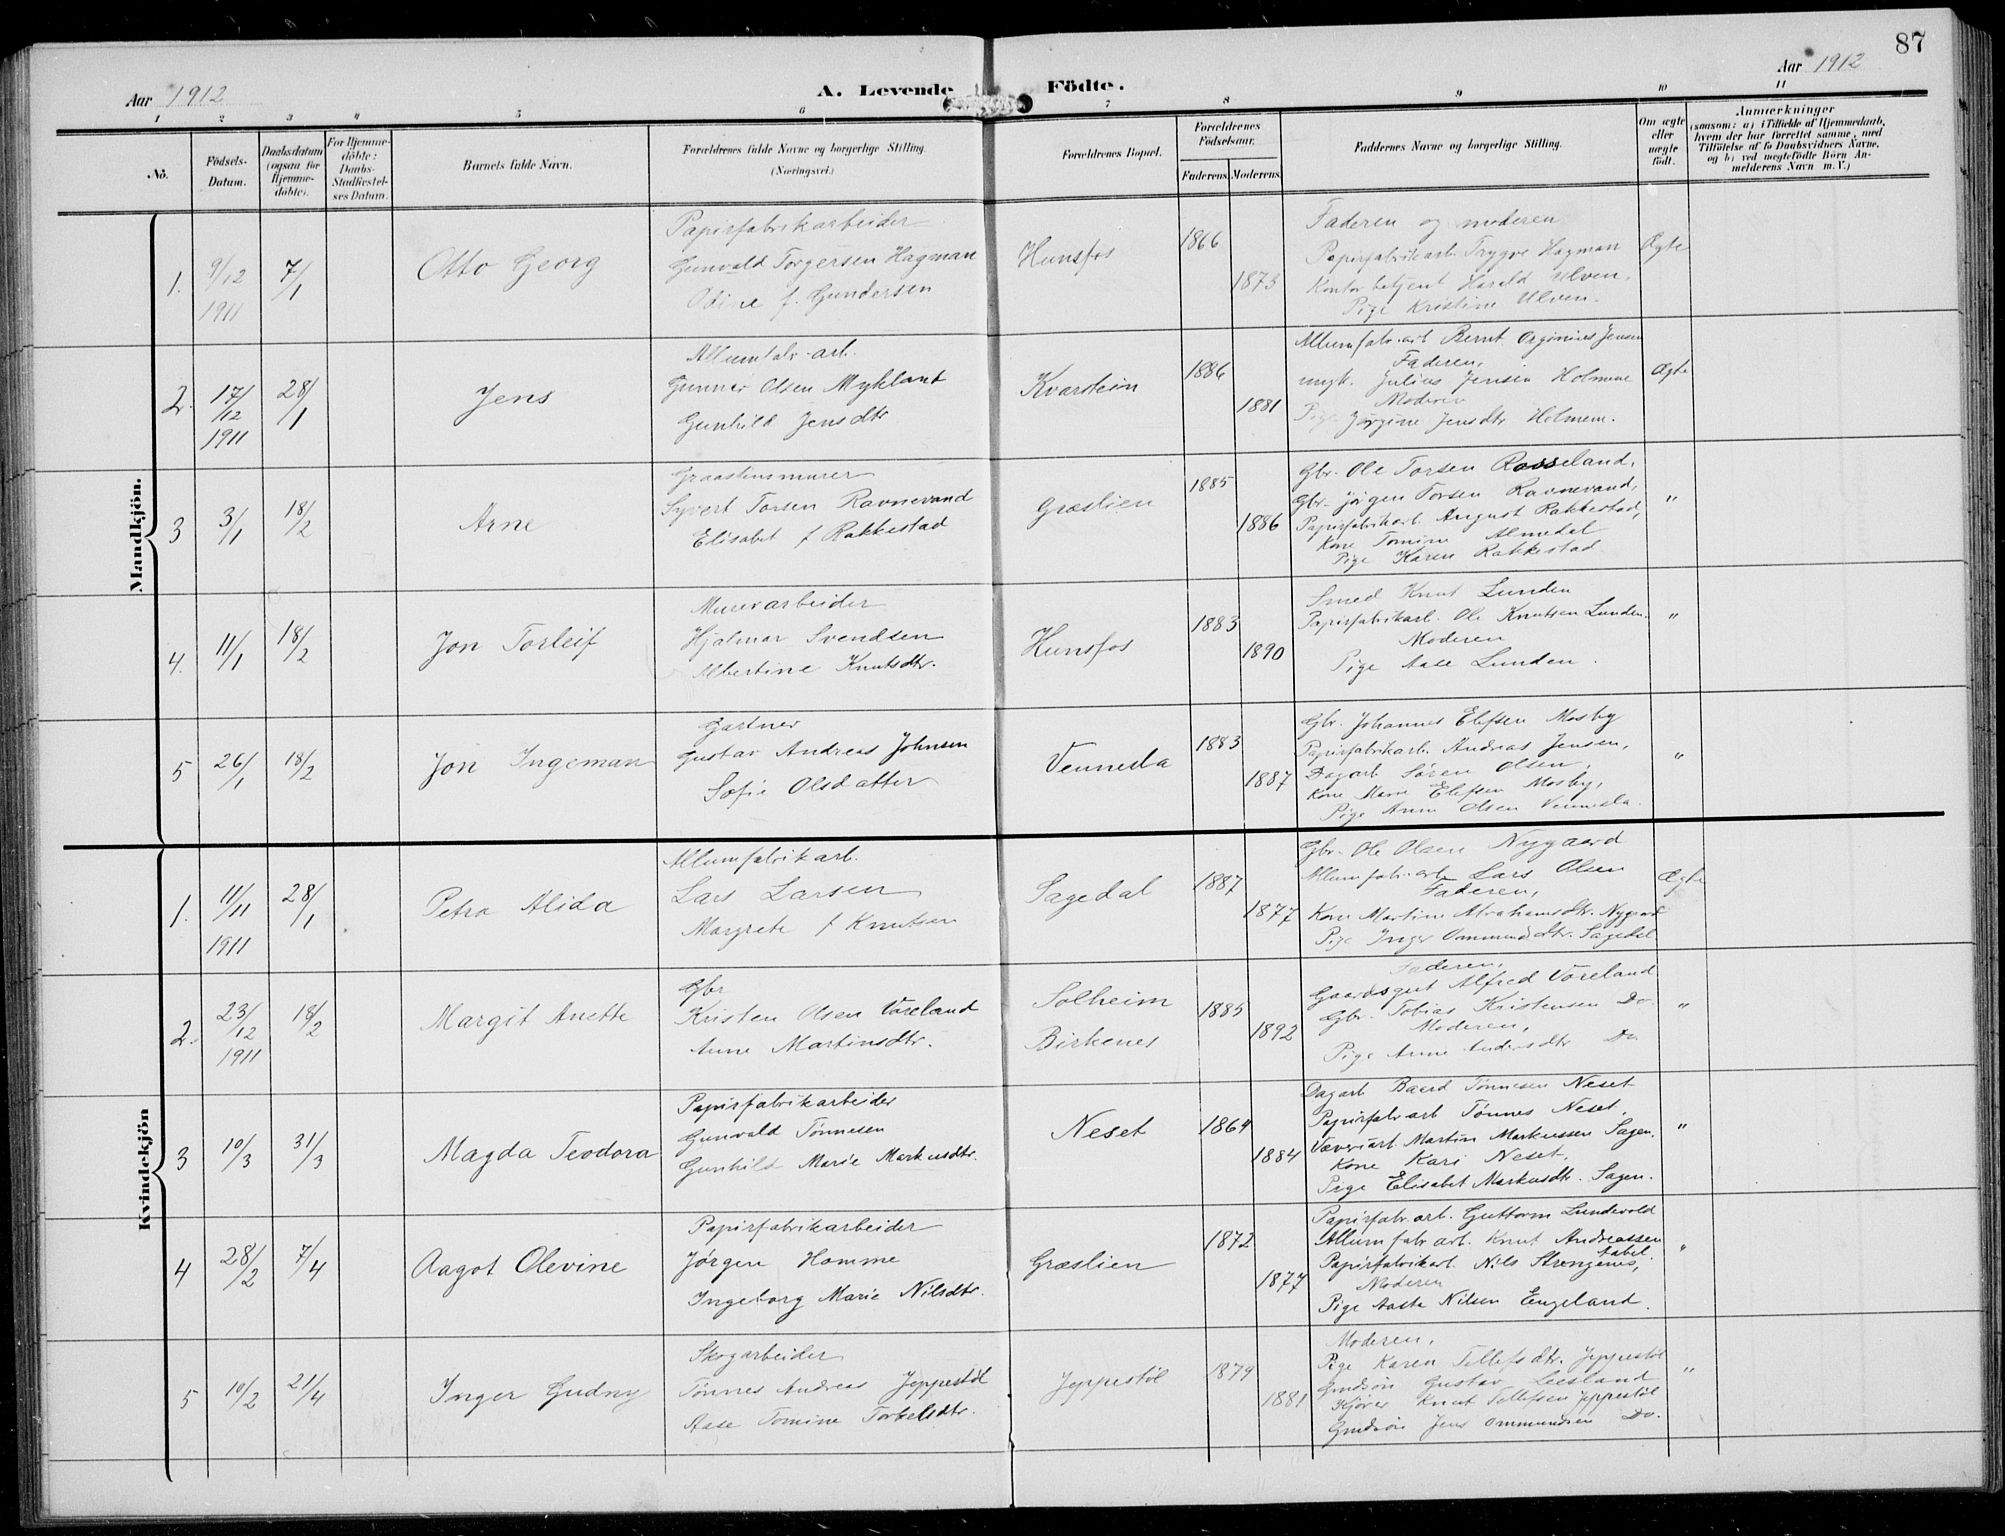 87
Aar 1912
A. Levende Födte.
Aar 1912
1 2 3 4 5 6 7 8 9 10 11
No.
Födsels-Datum.
Daabsdatum (ogsaa for Hjemmedöbte).
For Hjemmedöbte: Daabs-Stadfæstelses Datum.
Barnets fulde Navn.
Forældrenes fulde Navne og borgerlige Stilling. (Næringsvei.)
Forældrenes Bopæl.
Forældrenes Födselsaar.
Faderens. Moderens.
Faddernes Navne og borgerlige Stilling.
Om ægte eller uægte födt.
Anmærkninger
(saasom: a) i Tilfælde af Hjemmedaab, hvem der har forrettet samme, med Tilföielse af to Daabsvidners Navne, og b) ved uægtefödte Börn Anmelderens Navn m. V.)
Mandkjön.
1. 9/12 1911
7/1
Otto Georg
Papirfabrikarbeider
Gunvald Torgersen Hagman
Odine f. Gundersen
Hunsfos
1866
1873
Faderen og moderen
Papirfabrikarb. Trygve Hagman
Kontorbetjent Harald Ulven.
Pige Kristine Ulven.
Ægte
2. 17/12 1911
28/1
Jens
Allumfabr. arb.
Gunner Olsen Mykland
Gunhild Jensdtr
Kvarstein
1886
1881
Allumfabr. arb Bernt Jensen
Faderen,
ungk. Julius Jensen Holmene
Moderen
Pige Jørgine Jensdtr Holmem.
Ægte
3 3/1
18/2
Arne
Graastensmurer
Syvert Torsen Ravnevand
Elisabet f Rakkestad
Græslien
1885
1886
Gbr. Ole Torsen Rosseland,
Gbr. Jörgen Torsen Ravnevand,
Papirfabrikarb. August Rakkestad,
Kone Tomine Almedal
Pige Karen Rakkestad
"
4. 11/1
18/2
Jon Torleif
Murerarbeider
Hjalmar Svendsen
Albertine Knutsdtr.
Hunsfos
1883
1890
Smed Knut Lunden
Papirfabrikarb. Ole Knutsen Lunden.
Moderen
Pige Aase Lunden.
"
5 26/1
18/2
Jon Ingeman
Gartner
Gustav Andreas Johnsen
Sofie Olsdatter
Vennesla
1883
1887
Gbr. Johannes Elefsen Mosby
Papirfabrikarb. Andreas Jensen,
Dagarb Sören Olsen,
Kone Marie Elefsen Mosby,
Pige Anne Olsen Vennesla.
"
Kvindekjön
1. 11/11 1911
28/1
Petra Alida
Allumfabrikarb.
Lars Larsen
Margrete f Knutsen
Sagedal
1887
1877
Gbr. Ole Olsen Nygaard
Allumfabr. arb Lars Olsen
Faderen,
Kone Martine Abrahamsdtr. Nygaard
Pige Inger Ommundsdtr. Sagedal
Ægte
2. 23/12 1911
18/2
Margit Anette
Gbr
Kristen Olsen Væreland
Anne Martinsdtr.
Solheim
Birkenes
1885
1892
Faderen,
Gaardsgut Alfred Væreland
Gbr. Tobias Kristensen Do.
Moderen,
Pige Anne Andersdtr Do
"
3 10/3
31/3
Magda Teodora
Papirfabrikarbeider
Gunvald Tönnesen
Gunhild Marie Markusdtr.
Neset
1864
1884
Dagarb Baard Tönnesen Neset
Papirfabr arb Tønnes Neset,
Væveriarb. Martin Markussen Sagen.
Kone Kari Neset,
Pige Elisabet Markusdtr. Sagen.
"
4 28/2
7/4
Aagot Olevine
Papirfabrikarbeider
Jørgen Homme
Ingeborg Marie Nilsdtr.
Græslien
1872
1877
Papirfabr. arb. Guttorm Lundevold
Allumfabr arb. Knut Andreassen
Papirfabrikarb. Nils Strengenes,
Moderen
Pige Aasta Nilsen Engeland.
"
5 10/2
21/4
Inger Gudny
Skogarbeider
Tønnes Andreas Jeppestöl
Aase Tomine Torkelsdtr.
Jeppestöl
1879
1881
Moderen,
Pige Karen Tellefsdtr. Jeppestöl
Grdssön Gustav Leesland
Kjörer Knut Tellefsen Jeppestöl
Grdssön Jens Ommundsen Do.
"